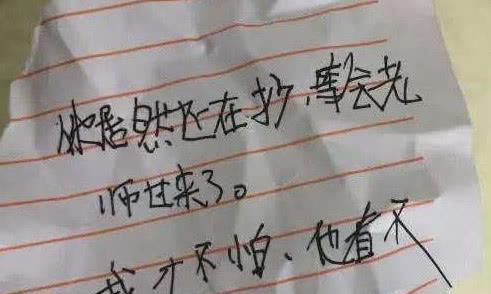 你居然还在抄，等会老
师过来了。
我才不怕、他看不